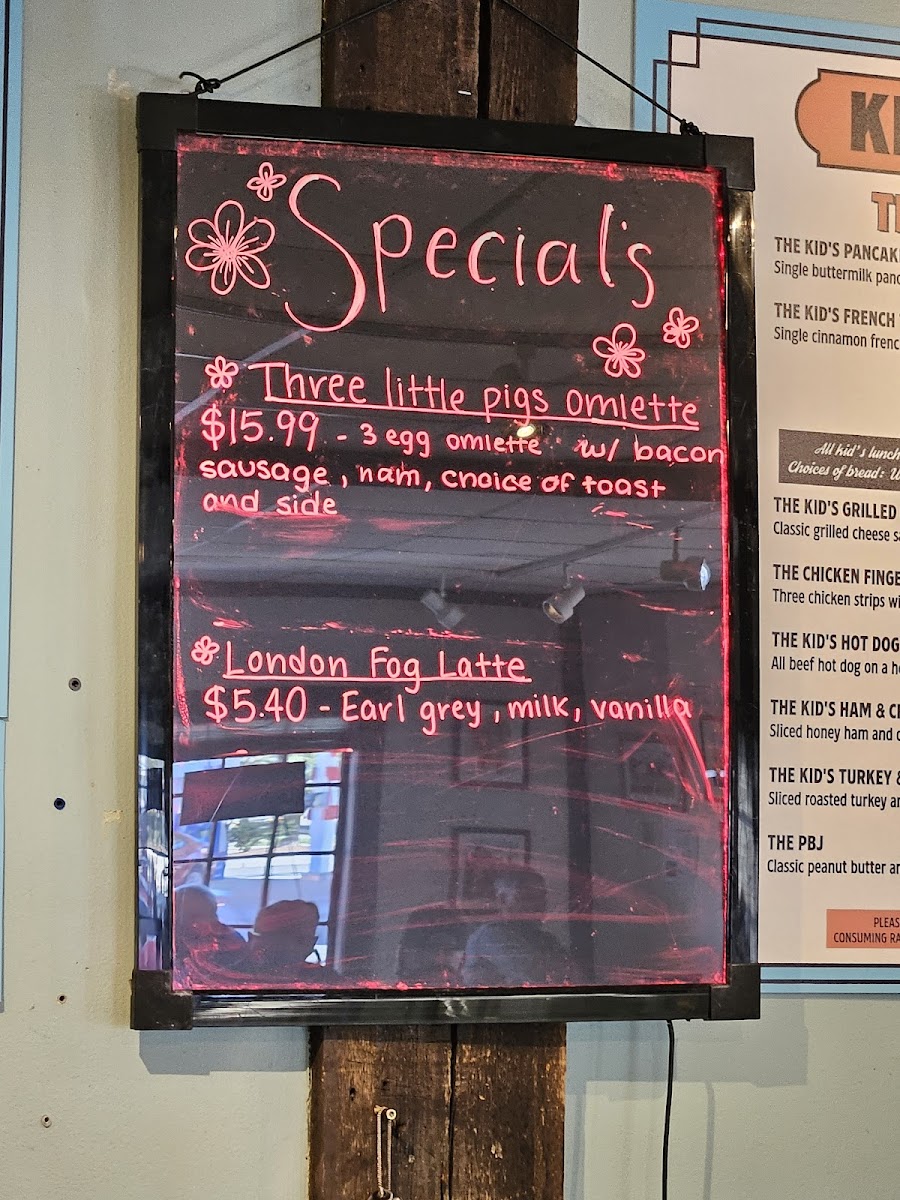 Special's
Three little pigs omlette
$15.99 - 3 egg omlette w/ bacon
sausage, ham, choice of toast
and side
London Fog Latte
$5.40 - Earl grey, milk, vanilla
THE KID'S PANCAK
Single buttermilk panc
THE KID'S FRENCH
Single cinnamon frenc
All kid's lunch
Choices of bread:
THE KID'S GRILLED
Classic grilled cheese s
THE CHICKEN FINGE
Three chicken strips wi
THE KID'S HOT DOG
All beef hot dog on a h
THE KID'S HAM & C
Sliced honey ham and
THE KID'S TURKEY &
Sliced roasted turkey a
THE PBJ
Classic peanut butter a
PLEAS
CONSUMING RA